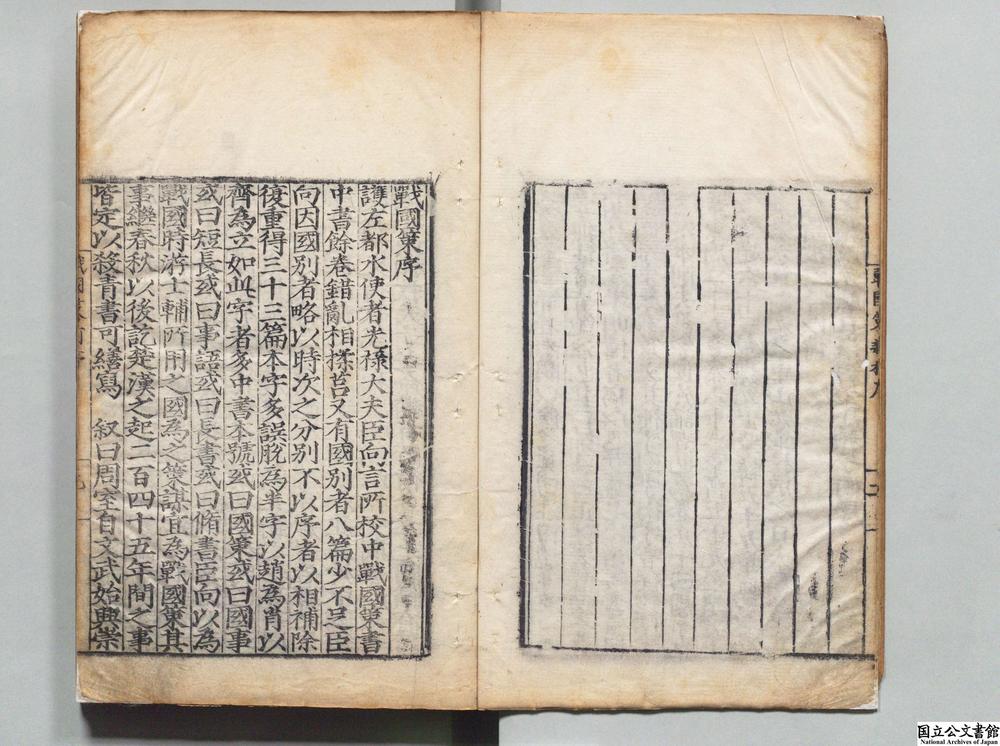 戰國策序
護左都水使者光祿大夫臣向言所校中戰國策書
中書餘卷錯亂相揉莒又有國別者八篇少不足臣
向因國別者略以時次之分別不以序者以相補除
復重得三十三篇本字多誤脫為半字以趙為肖以
齊為立如此字者多中書本號或曰國策或曰國事
或曰短長或曰事語或曰長書或曰脩書臣向以為
戰國時游士輔所用之國為之策謀宜為戰國策其
事繼春秋以後訖楚漢之起二百四十五年間之事
皆定以殺青書可繕寫 叙曰周室自文武始興崇
国立公文書館
National Archives of Japan